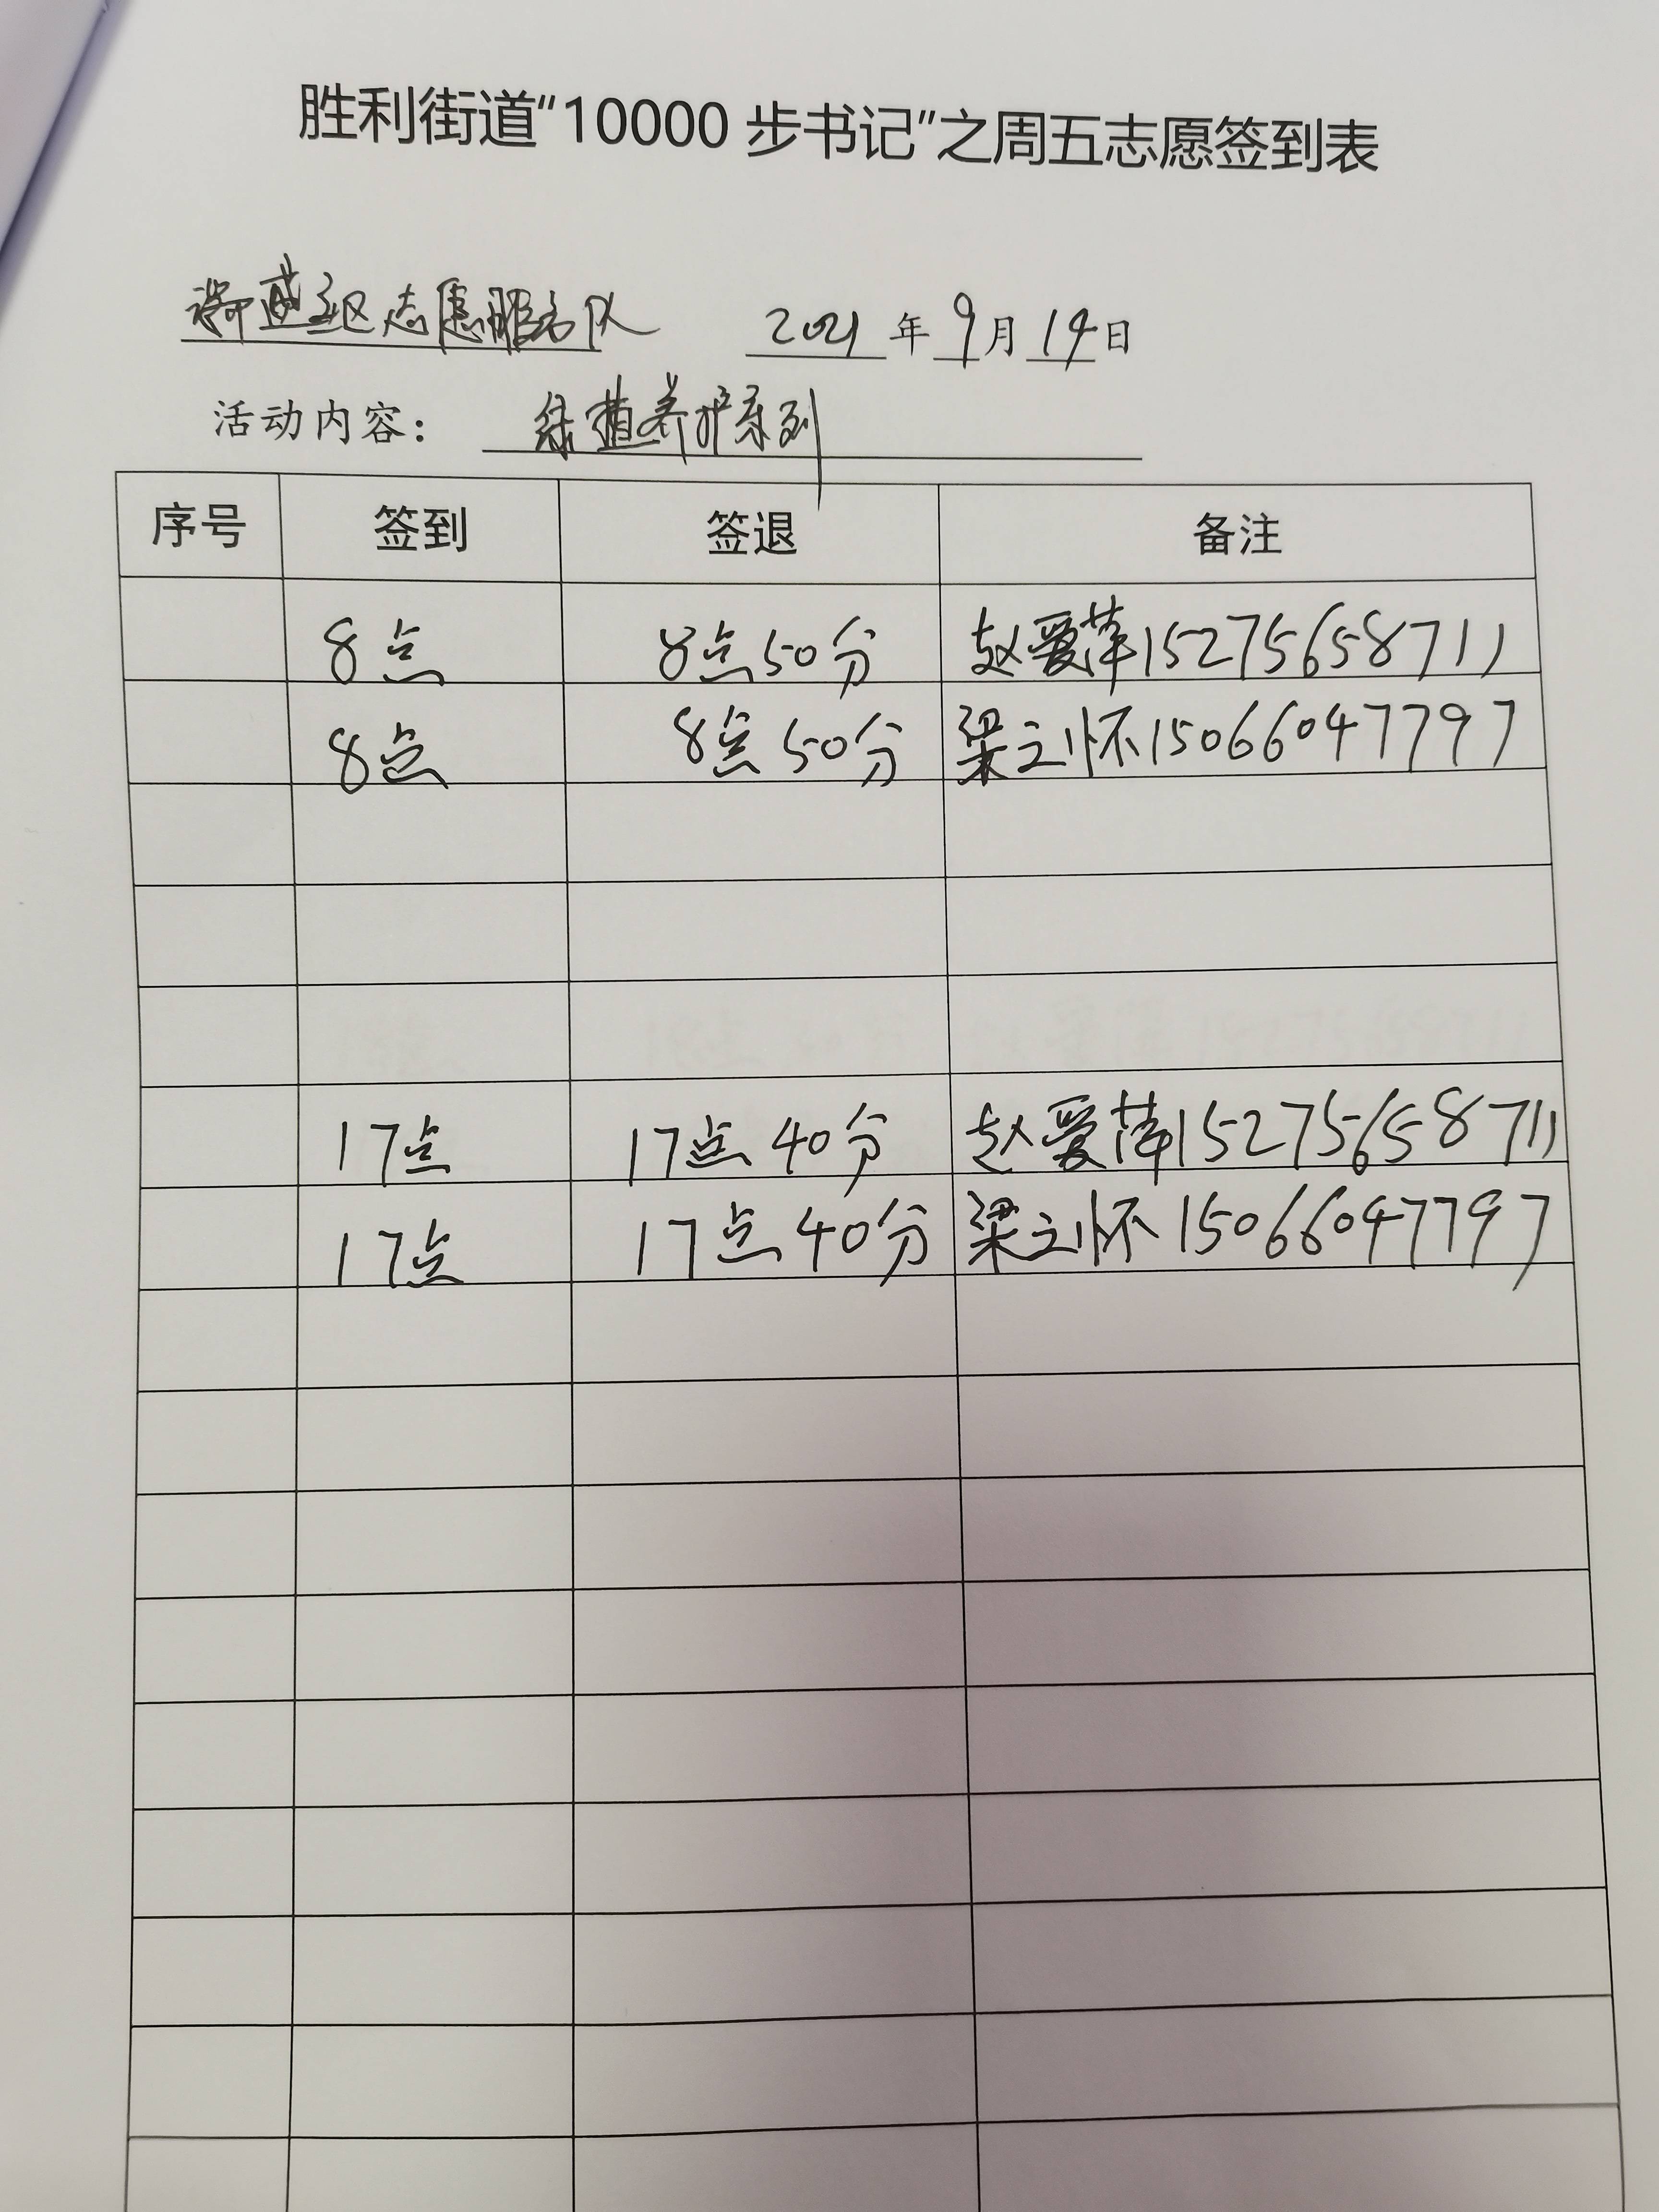 胜利街道“10000 步书记”之周五志愿签到表
社区志愿服务队 2021 年 9 月 14 日
活动内容： 绿植养护系列
序号 签到 签退 备注
8点 8点50分 赵爱萍15275658711
8点 8点50分 梁之怀15066047797
17点 17点40分 赵爱萍15275658711
17点 17点40分 梁之怀15066047797